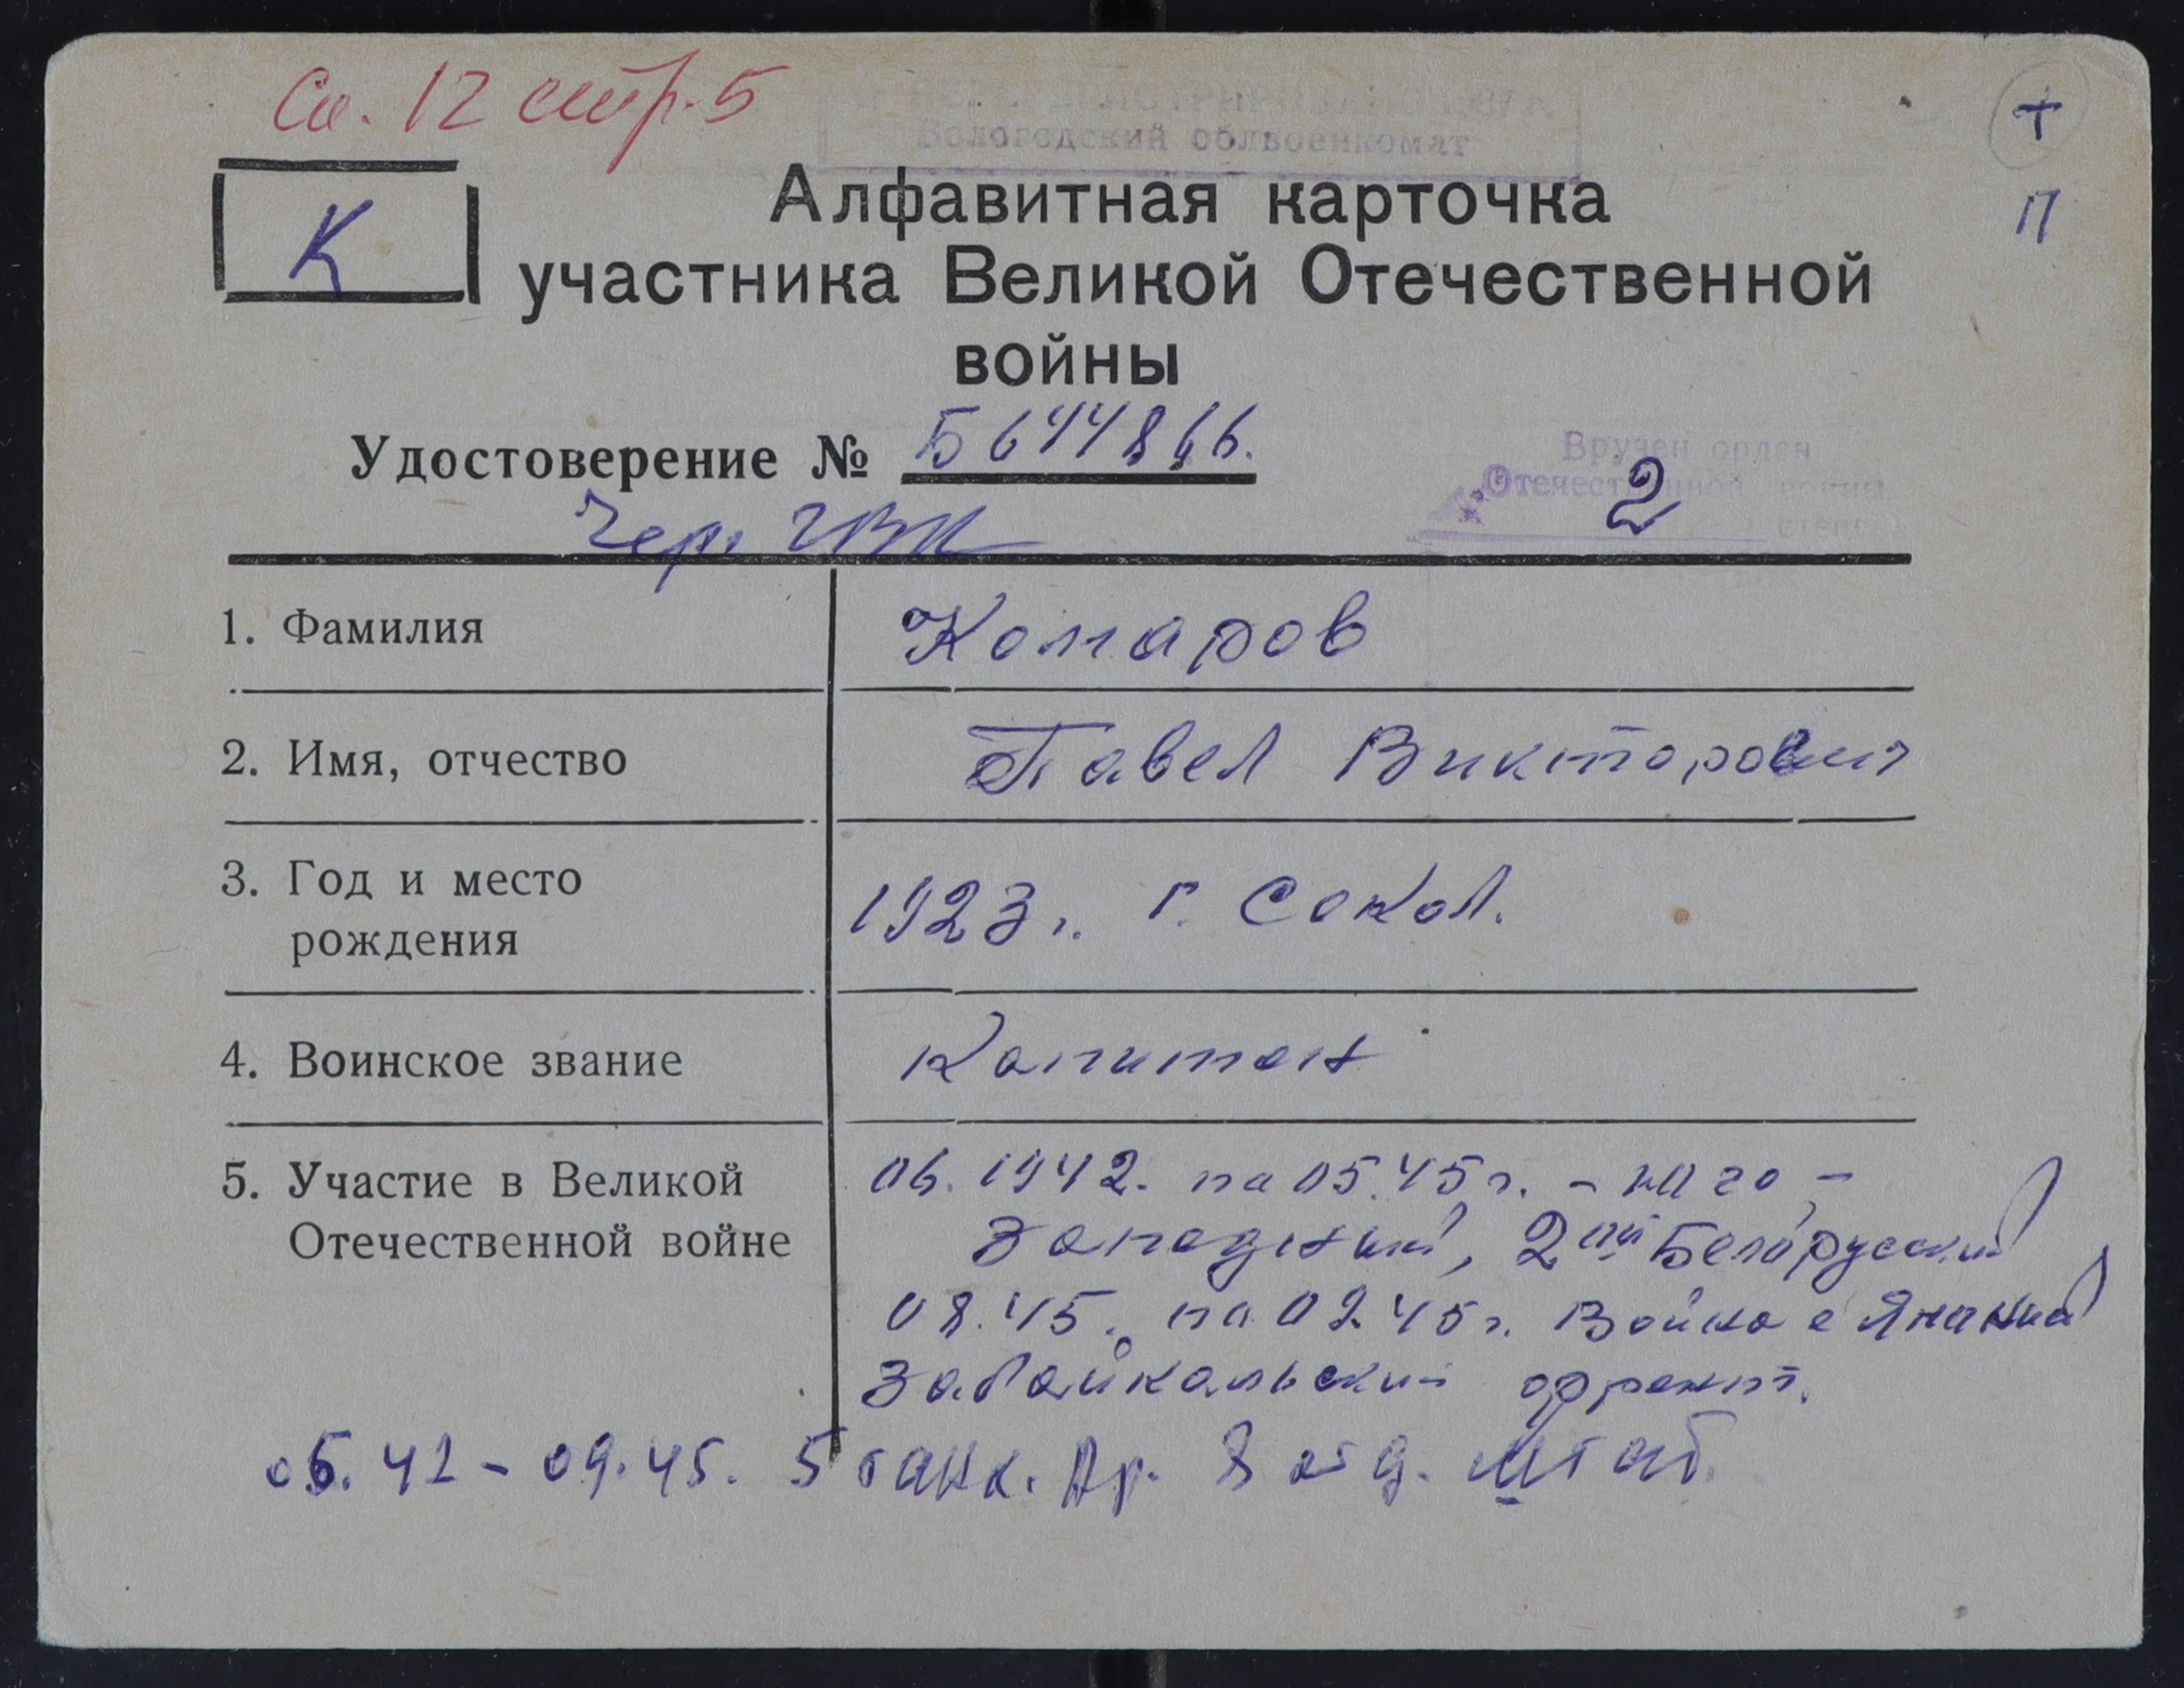 Сп. 12 стр. 5
Вологодский облвоенкомат
+
П
К
Алфавитная карточка
участника Великой Отечественной
войны
Удостоверение № Б 644866.
Вручен орден
Отечественной войны
2 степ
Чер. ГВК
1. Фамилия Комаров
2. Имя, отчество Павел Викторович
3. Год и место
рождения
1923 г. г. Сокол.
4. Воинское звание Капитан
5. Участие в Великой
Отечественной войне
06. 1942. по 05.45 г. - Юго -
Западный, 2ой Белорусский
08.45. по 09.45 г. Война с Японией
Забайкальский фронт.
05.42 - 09.45. 5 танк. Ар. 8 отд. штаб.